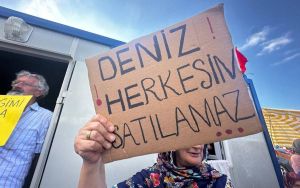 DENİZ !
! HERKESİN
SATILAMAZ !